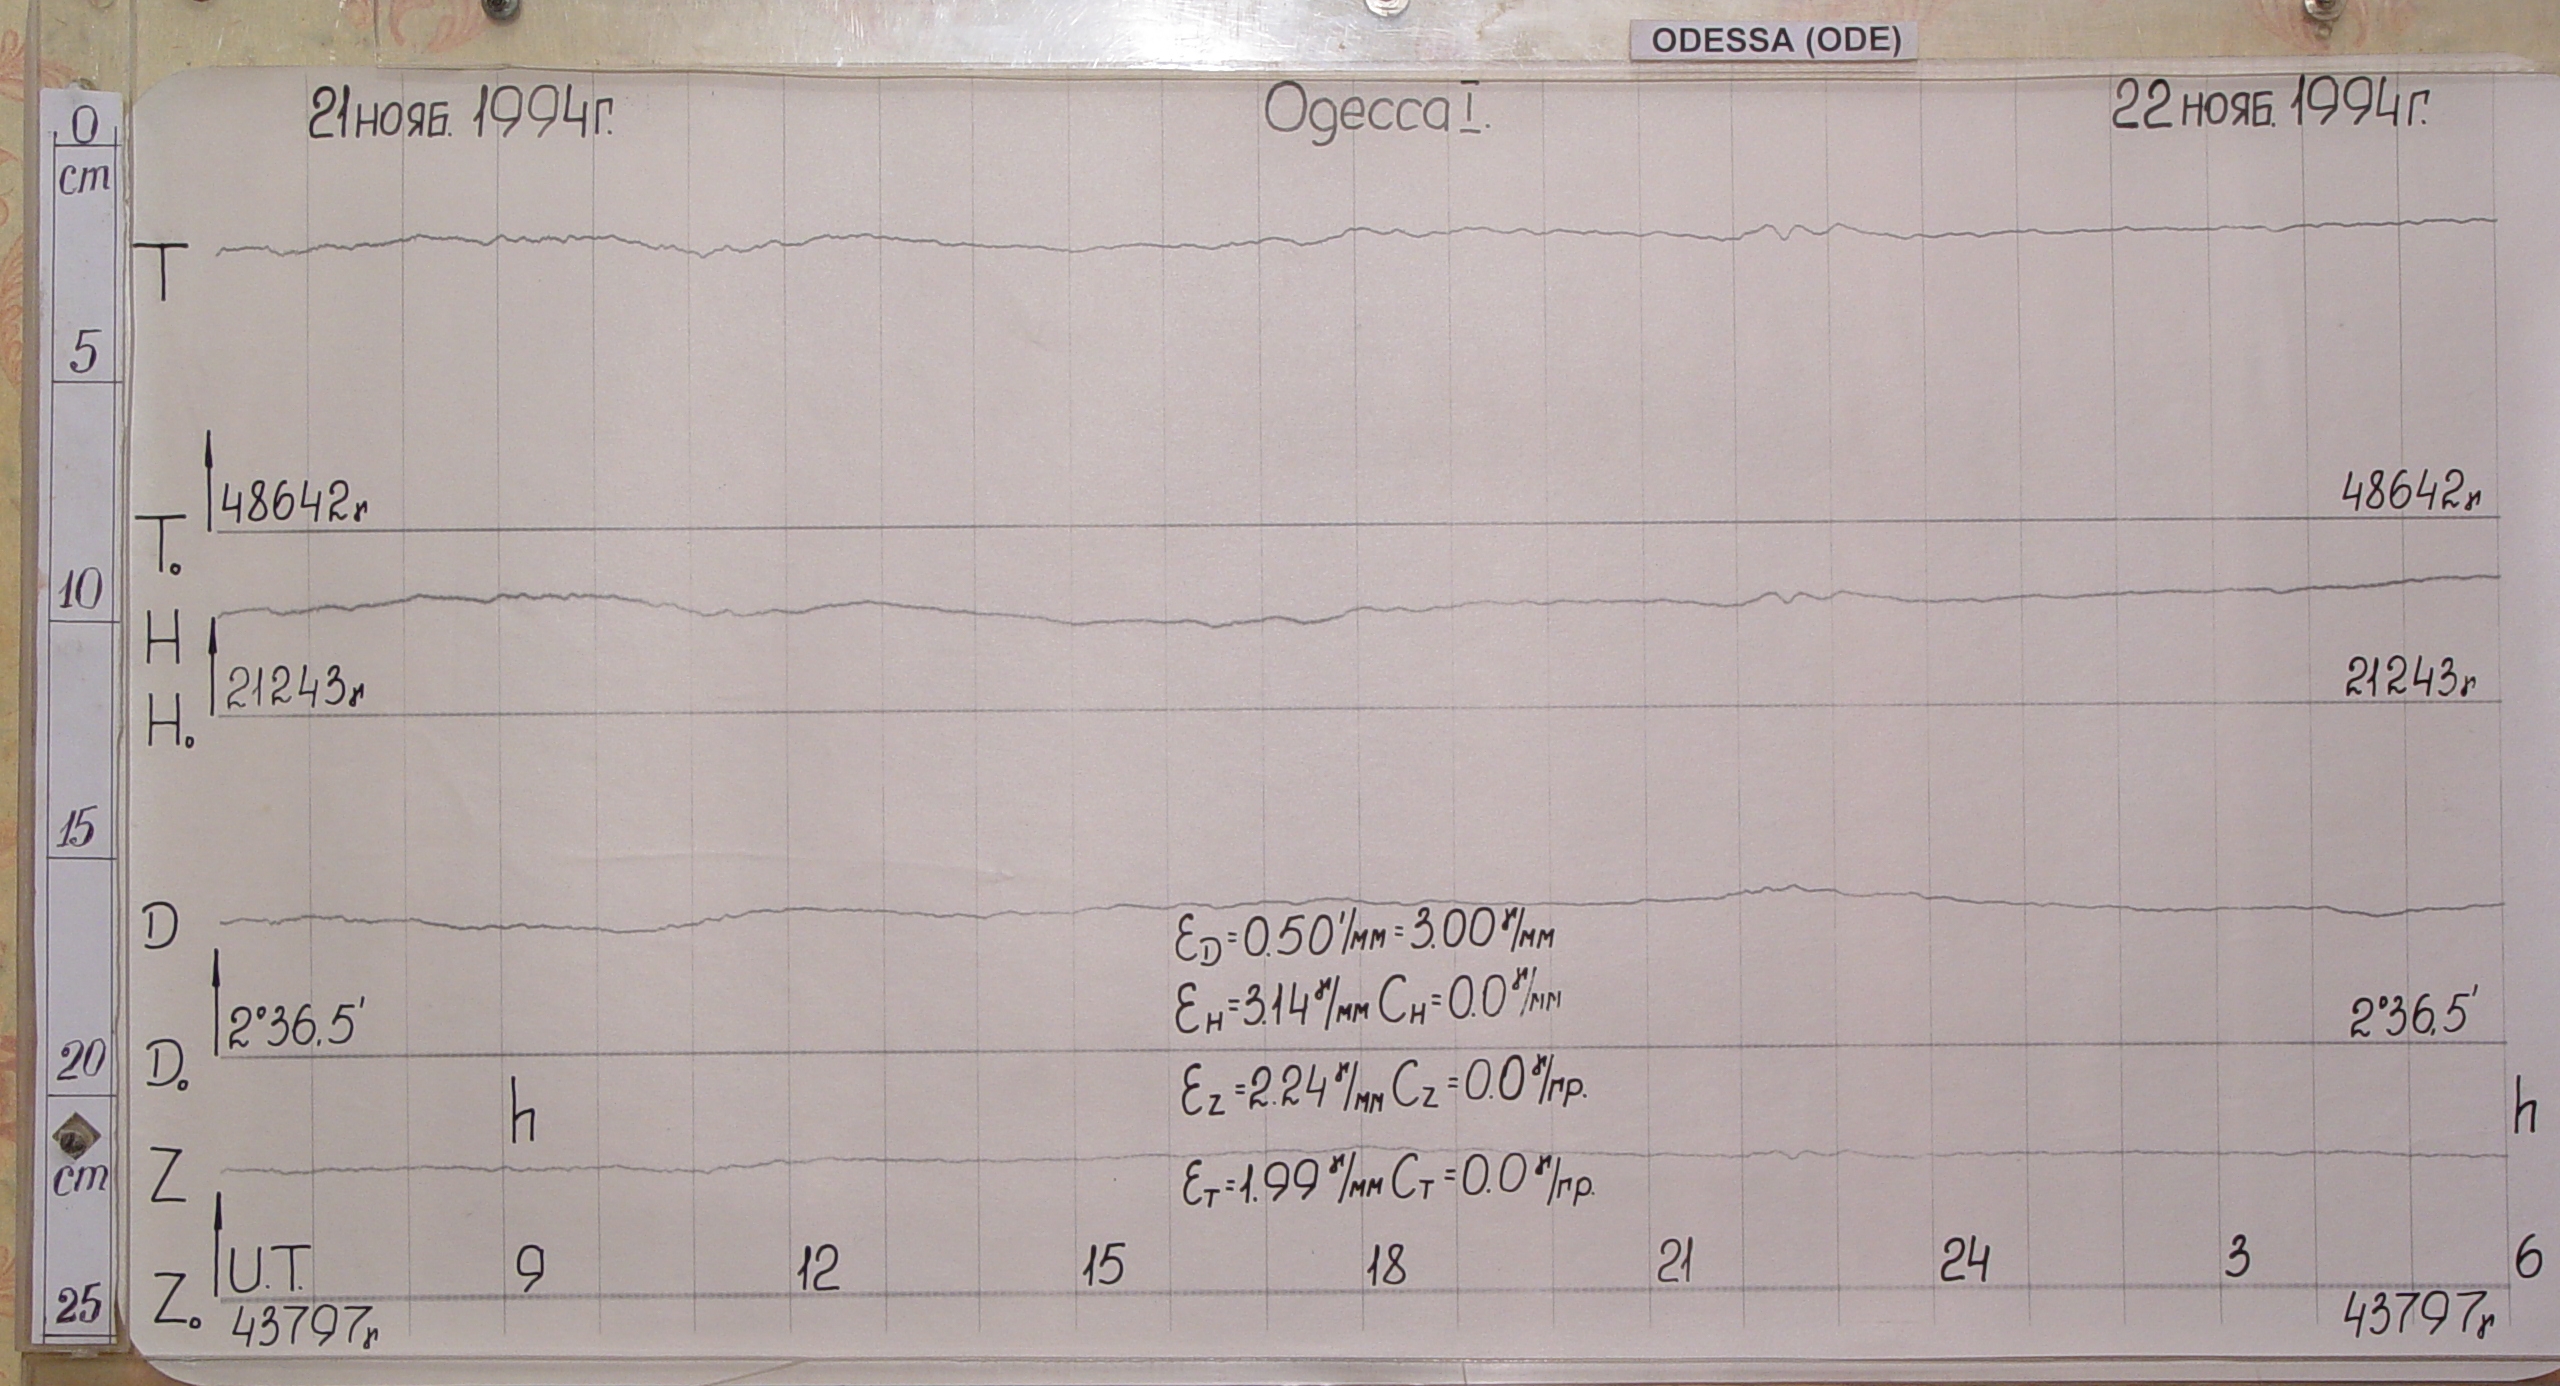 ODESSA (ODE)
21 нояб. 1994г.
Одесса I.
22 нояб. 1994г.
0
cm
5
10
15
20
cm
25
T
48642γ
48642γ
T₀
H
21243γ
21243γ
H₀
D
2°36.5'
2°36.5'
D₀
ƐD=0.50'/мм=3.00γ/мм
ƐH=3.14γ/мм CH=0.0γ/мм
ƐZ=2.24γ/мм CZ=0.0γ/гр.
ƐT=1.99γ/мм CT=0.0γ/гр.
h
h
Z
U.T. 9 12 15 18 21 24 3 6
Z₀
43797γ
43797γ